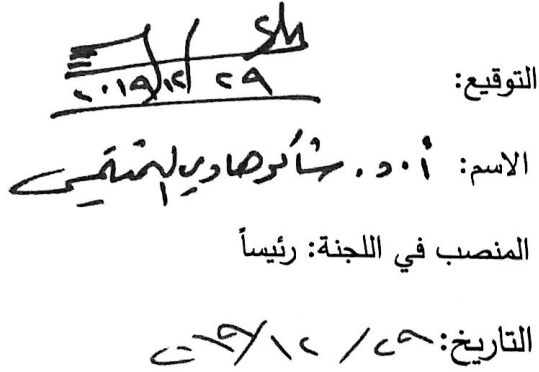 التوقيع:
٢٠١٩/١٢/٢٩
الاسم: أ.د. شاكر هادي التميمي
المنصب في اللجنة: رئيساً
التاريخ: ٢٩/١٢/٢٠١٩